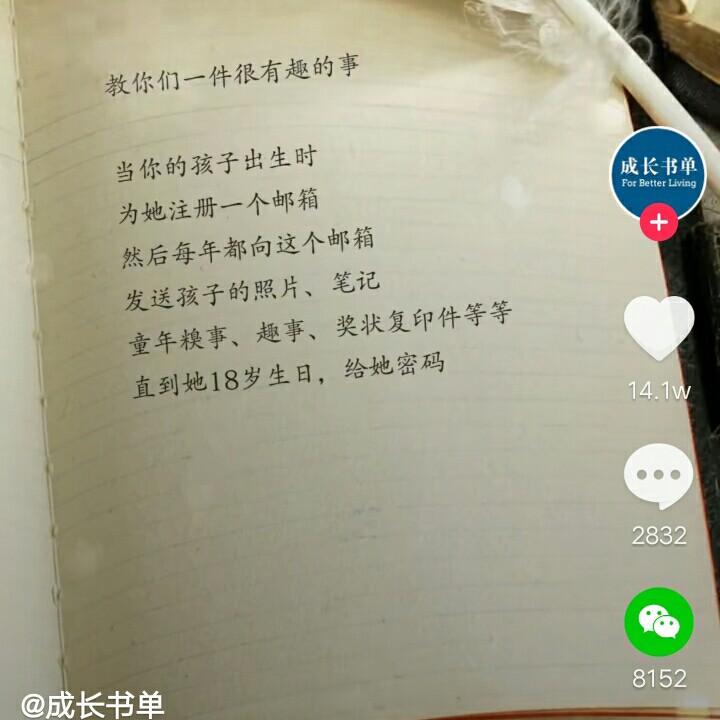 教你们一件很有趣的事
当你的孩子出生时
为她注册一个邮箱
然后每年都向这个邮箱
发送孩子的照片、笔记
童年糗事、趣事、奖状复印件等等
直到她18岁生日，给她密码
成长书单
For Better Living
14.1w
2832
8152
@成长书单